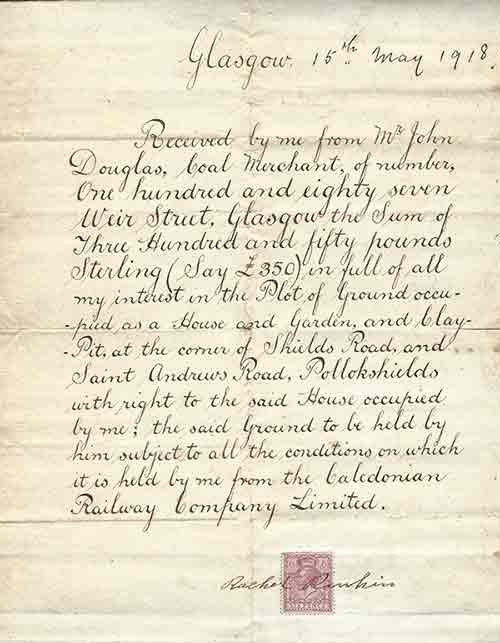 Glasgow, 15th May 1918.
Received by me from Mr John
Douglas, Coal Merchant, of number,
One hundred and eighty seven
Weir Street, Glasgow the Sum of
Three Hundred and fifty pounds
Sterling (Say £350) in full of all
my interest in the Plot of Ground occu-
-pied as a House and Garden, and Clay-
-Pit, at the corner of Shields Road, and
Saint Andrews Road, Pollokshields
with right to the said House occupied
by me; the said Ground to be held by
him subject to all the conditions on which
it is held by me from the Caledonian
Railway Company Limited.
Rachel Rankin
SIX PENCE